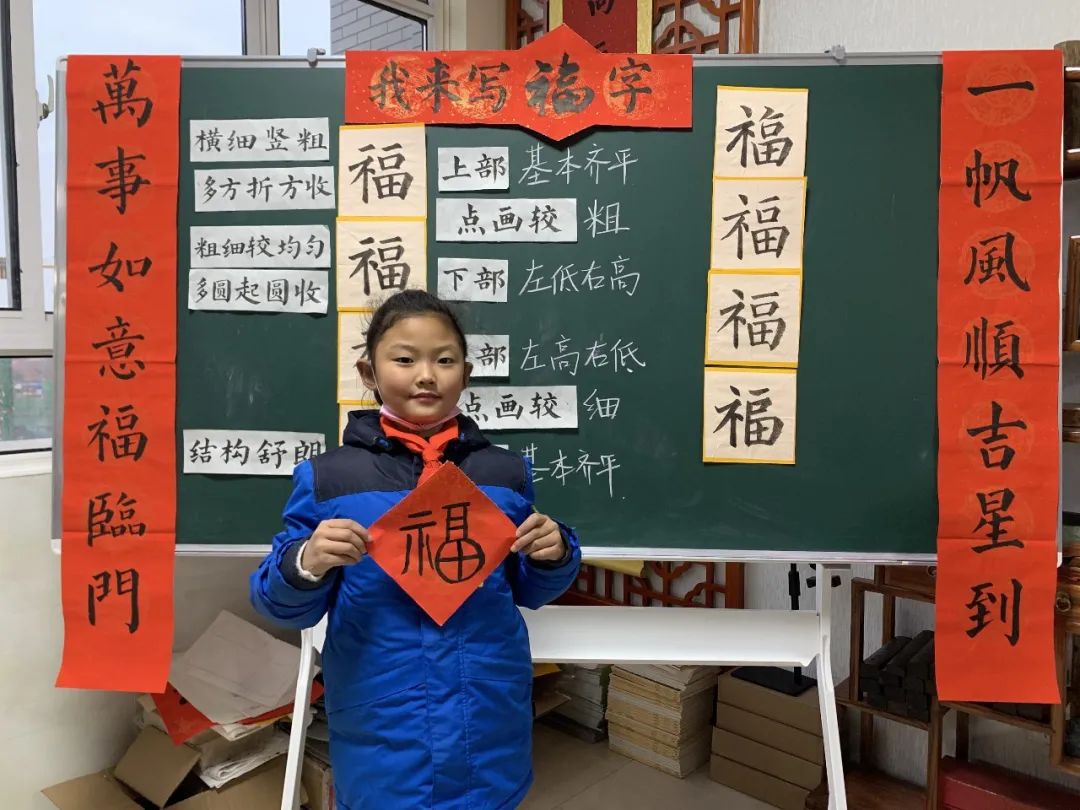 我来写福字
一帆風順吉星到
萬事如意福臨門
横细竖粗
多方折方收
粗细较均匀
多圆起圆收
结构舒朗
福
福
上部 基本齐平
点画较 粗
下部 左低右高
部 左高右低
点画较 细
基本齐平
福
福
福
福
福